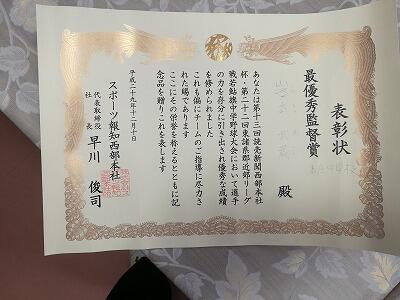 表彰状
最優秀監督賞
殿
あなたは第十三回読売新聞西部本社
杯・第二十二回東諸県郡近郊リーグ
戦若鮎旗中学野球大会において選手
の力を存分に引き出され優秀な成績
を修められました
これも偏にチームのご指導に尽力さ
れた賜であります
ここにその栄誉を称えるとともに記
念品を贈りこれを表します
平成二十九年十二月十日
スポーツ報知西部本社
代表取締役
社長 早川 俊司